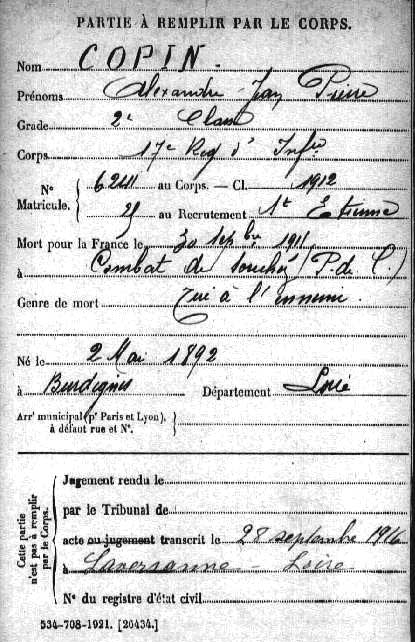 PARTIE À REMPLIR PAR LE CORPS.
Nom COPIN.
Prénoms Alexandre Jean Pierre
Grade 2e Classe
Corps 17e Reg d'Infie
N° Matricule. { 6241 au Corps. — Cl. 1912
au Recrutement St Etienne
Mort pour la France le 30 sepbre
à Combat de Souchez (P. de C.)
Genre de mort Tué à l'ennemi.
Né le 2 Mai 1892
à Burdignes Département Loire
Arrt municipal (pr Paris et Lyon), à défaut rue et N°. }
Cette partie n'est pas à remplir par le Corps.
Jugement rendu le
par le Tribunal de
acte ou jugement transcrit le 28 septembre 1916
à Loire
N° du registre d'état civil
534-708-1921. [26434.]